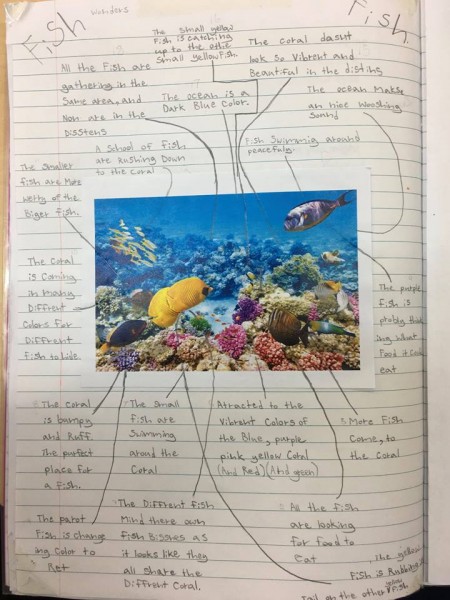 Fish
Wonders
Fish.
The Small yellow
Fish is catching
up to the othe
Small yellow Fish.
The coral dasnt
look So Vibrent and
Beautiful in the disting
All the Fish are
gathering in the
Same area, and
Non are in the
Disstens
The ocean is a
Dark Blue Color.
The ocean Makse
an nice Wooshing
Sound
A School of fish
are Rushing Down
to the Coral
Fish Swimming around
peacefuly.
The Smaller
fish are More
of the
Biger fish.
The Coral
is Coming
in Many
Diffrent
Colors for
Different
fish to hide.
The purple
Fish is
probly
ing what
Food it
eat
The Coral
is bumpy
and Ruff.
The purfect
place for
a fish.
The Small
fish are
Swimming
around the
Coral
Atracted to the
Vibrent Colors of
the Blue, purple
pink yellow Coral
(And Red) (And green)
More Fish
Come, to
the Coral
The parot
Fish is change
ing Color to
The Diffrent fish
Mind there own
fish Bissves as
it looks like they
all share the
Diffrent Coral.
All the fish
are looking
for food to
Eat
The yellow
Fish is
Tail on the other yellow Fish